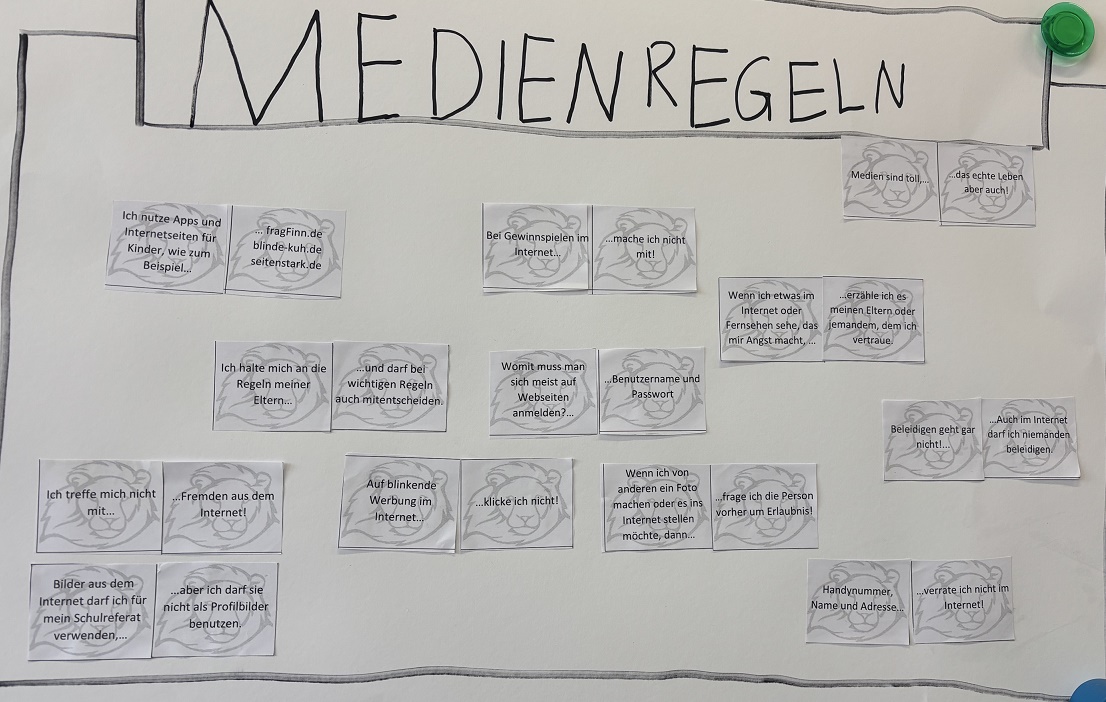 MEDIENREGELN
Medien sind toll,...
...das echte Leben
aber auch!
Ich nutze Apps und
Internetseiten für
Kinder, wie zum
Beispiel...
... fragFinn.de
blinde-kuh.de
seitenstark.de
Bei Gewinnspielen im
Internet...
...mache ich nicht
mit!
Wenn ich etwas im
Internet oder
Fernsehen sehe, das
mir Angst macht, ...
...erzähle ich es
meinen Eltern oder
jemandem, dem ich
vertraue.
Ich halte mich an die
Regeln meiner
Eltern...
...und darf bei
wichtigen Regeln
auch mitentscheiden.
Womit muss man
sich meist auf
Webseiten
anmelden?...
...Benutzername und
Passwort
Beleidigen geht gar
nicht!...
...Auch im Internet
darf ich niemanden
beleidigen.
Ich treffe mich nicht
mit...
...Fremden aus dem
Internet!
Auf blinkende
Werbung im
Internet...
...klicke ich nicht!
Wenn ich von
anderen ein Foto
machen oder es ins
Internet stellen
möchte, dann...
...frage ich die Person
vorher um Erlaubnis!
Bilder aus dem
Internet darf ich für
mein Schulreferat
verwenden,...
...aber ich darf sie
nicht als Profilbilder
benutzen.
Handynummer,
Name und Adresse...
...verrate ich nicht im
Internet!